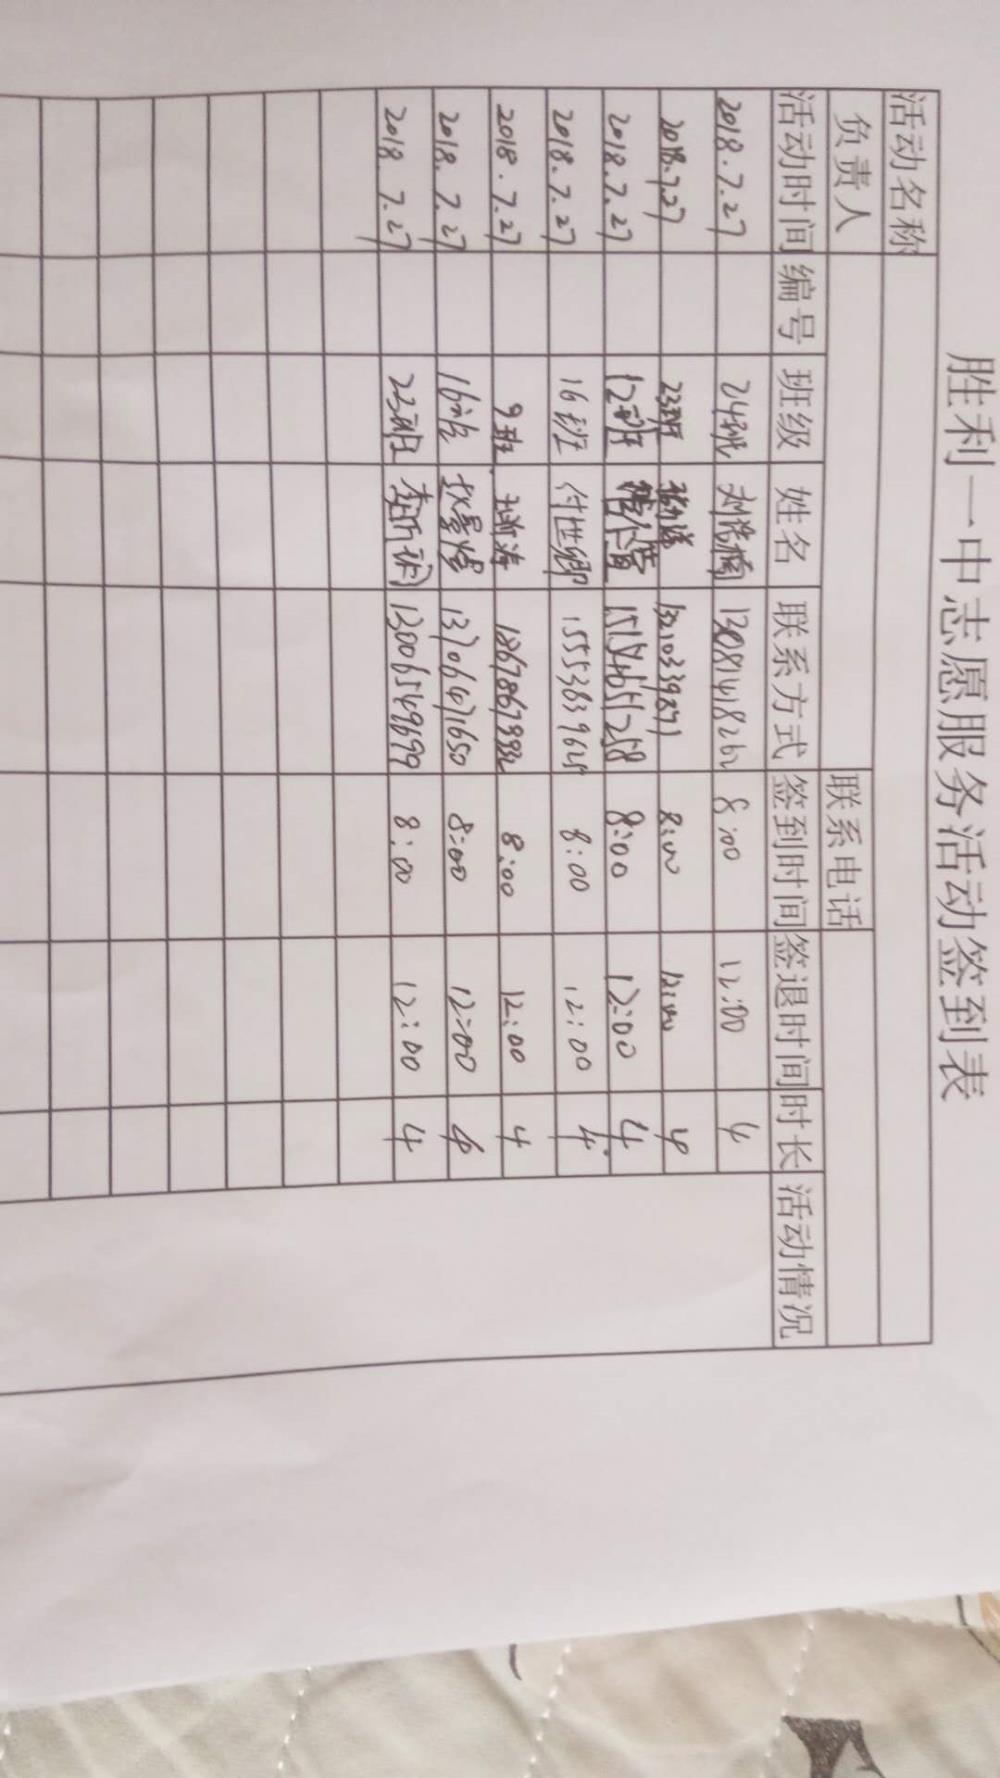 胜利一中志愿服务活动签到表
活动名称
负责人 联系电话
活动时间 编号 班级 姓名 联系方式 签到时间 签退时间 时长 活动情况
2018.7.27 24班 13081418262 8:00 12:00 4
2018.7.27 23班 13210339877 8:00 12:00 4
2018.7.27 12班 15154651258 8:00 12:00 4
2018.7.27 16班 付世卿 15553839615 8:00 12:00 4
2018.7.27 9班 18678679332 8:00 12:00 4
2018.7.27 16班 13706471650 8:00 12:00 4
2018.7.27 23班 13006549699 8:00 12:00 4